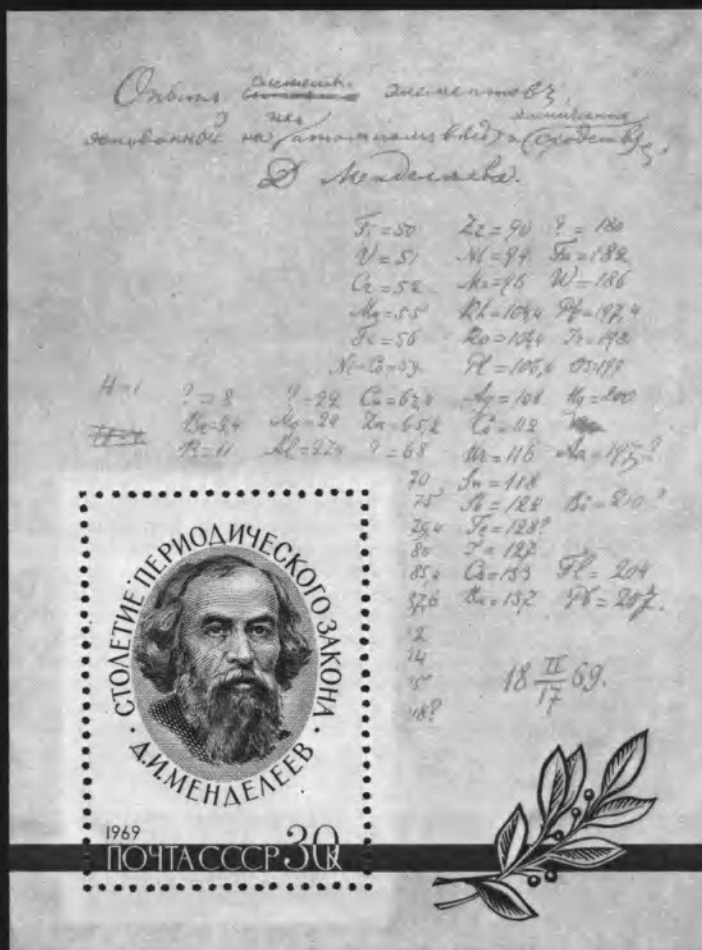 Опытъ системы элементовъ,
основанной на ихъ атомномъ вѣсѣ и сходствѣ,
Д Менделѣева.
Ti=50 Zr=90 ?=180
V=51 Nb=94 Ta=182
Cr=52 Mo=96 W=186
Mn=55 Rh=104,4 Pt=197,4
Fe=56 Ru=104,4 Ir=198
Ni=Co=59 Pl=106,6 Os=199
H=1 ?=8 ?=22 Cu=63,4 Ag=108 Hg=200
Be=9,4 Mg=24 Zn=65,2 Cd=112
B=11 Al=27,4 ?=68 Ur=116 Au=197?
70 Sn=118
75 Sb=122 Bi=210?
79,4 Te=128?
80 J=127
85,4 Cs=133 Tl=204
87,6 Ba=137 Pb=207.
18 II/17 69.
СТОЛЕТИЕ ПЕРИОДИЧЕСКОГО ЗАКОНА
· Д.И.МЕНДЕЛЕЕВ ·
1969
ПОЧТА СССР 30К